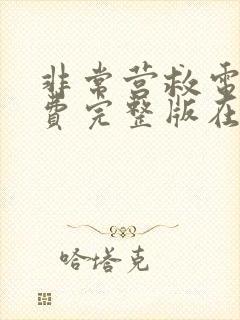 非常营救电
费完整版在
哈塔克